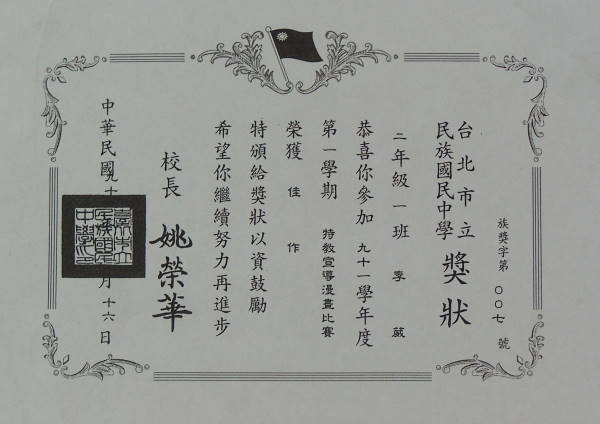 族獎字第 〇〇七 號
台北市立
民族國民中學
獎狀
二年級一班 李 葳
恭喜你參加 九十一學年度
第一學期 特教宣導漫畫比賽
榮獲 佳 作
特頒給獎狀以資鼓勵
希望你繼續努力再進步
校長 姚榮華
中華民國九十 月十六日